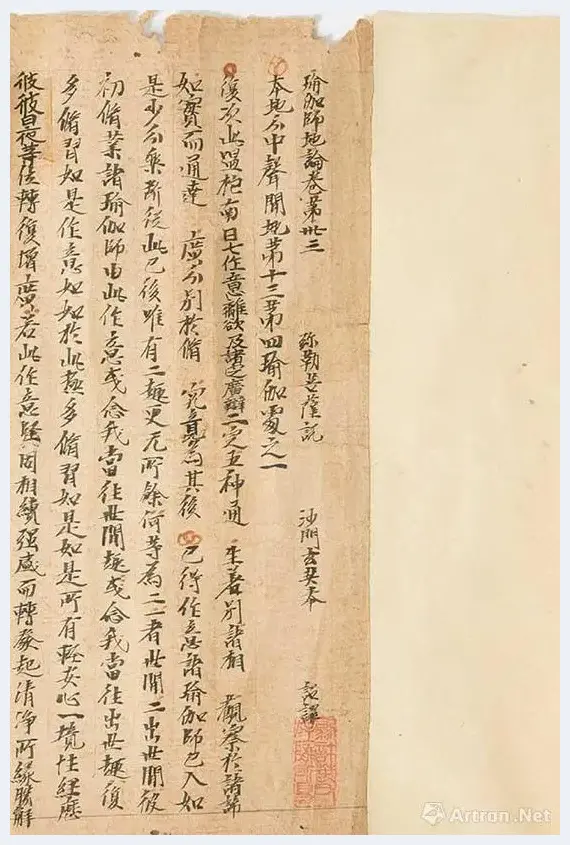 瑜伽師地論卷第卅三 弥勒菩薩說 沙門玄奘奉 詔譯
本地分中聲聞地第十三第四瑜伽處之一
復次此嗢柂南曰七作意離欲及諸定廣辯二定五神通 生差別諸相 觀察於諸諦
如實而通達 廣分別於脩 究竟為其後 已得作意諸瑜伽師已入如
是少分樂断從此已後唯有二趣更无所餘何等為二一者世間二出世間彼
初脩業諸瑜伽師由此作意或念我當往世間趣或念我當往出世趣復
多脩習如是作意如如於此極多脩習如是如是所有輕安心一境性經歷
彼彼日夜等位轉復增廣若此作意堅固相續强盛而轉發起清淨所緣勝解
Artron.Net